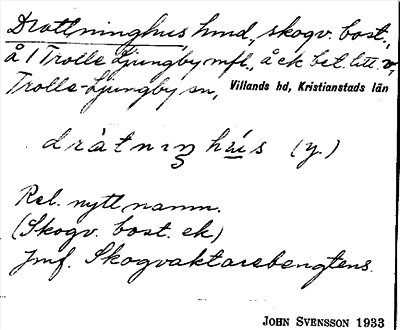 Drottninghus hmd, skogv. bost.,
å 1 Trolle Ljungby mfl., å ek bet. litt. v,
Trolle-Ljungby sn, Villands hd, Kristianstads län
dråtnıŋ hús (y.)
Rel. nytt namn.
(Skogv. bost. ek)
Jmf. Skogvaktarebengtens.
JOHN SVENSSON 1933